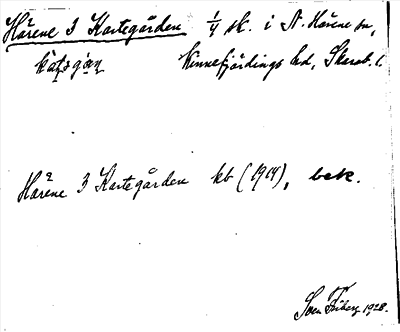 Härene 3 Kartegården 1/4 sk. i N. Härene sn,
Vinnefjärdings hd, Skarab. l.
Härene 3 Kartegården kb (1914), bek.
Sven Friberg 1928.